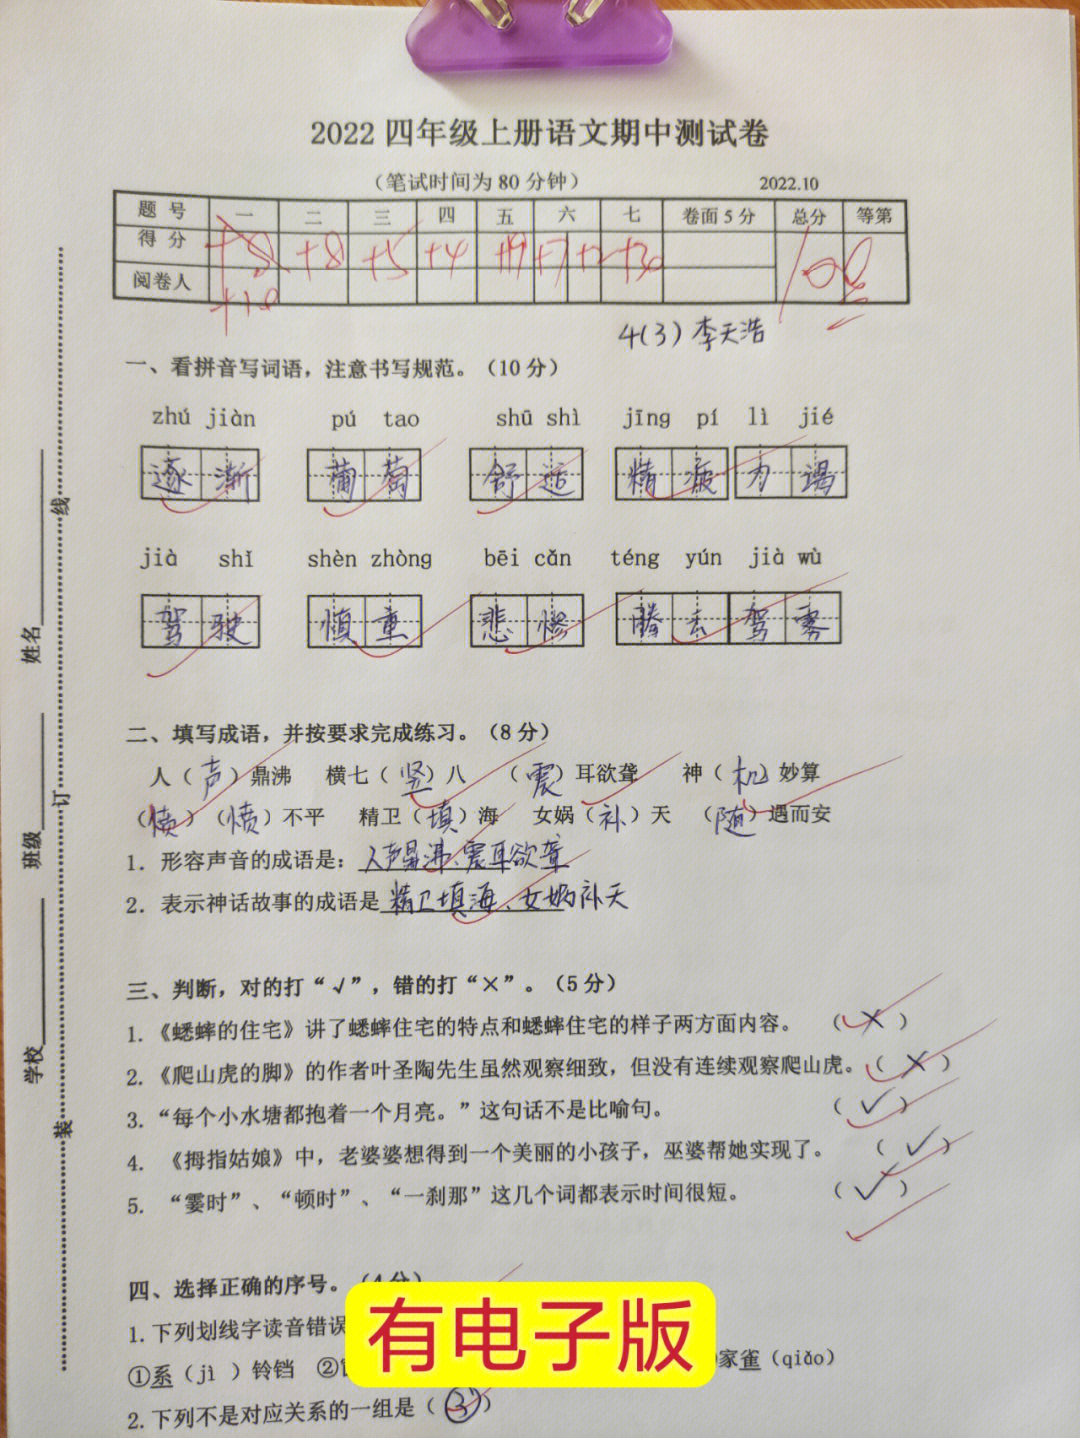 2022四年级上册语文期中测试卷
（笔试时间为80分钟） 2022.10
题号 一 二 三 四 五 六 七 卷面5分 总分 等第
得分 +8 +8 +5 +4 +19 +7 +30 100
阅卷人 +10
4(3) 李天浩
一、看拼音写词语，注意书写规范。（10分）
zhú jiàn pú tao shū shì jīng pí lì jié
逐渐 葡萄 舒适 精疲力竭
jià shǐ shèn zhòng bēi cǎn téng yún jià wù
驾驶 慎重 悲惨 腾云驾雾
二、填写成语，并按要求完成练习。（8分）
人（声）鼎沸 横七（竖）八 （震）耳欲聋 神（机）妙算
（愤）（愤）不平 精卫（填）海 女娲（补）天 （随）遇而安
1. 形容声音的成语是：人声鼎沸、震耳欲聋
2. 表示神话故事的成语是 精卫填海、女娲补天
三、判断，对的打“√”，错的打“×”。（5分）
1.《蟋蟀的住宅》讲了蟋蟀住宅的特点和蟋蟀住宅的样子两方面内容。（×）
2.《爬山虎的脚》的作者叶圣陶先生虽然观察细致，但没有连续观察爬山虎。（×）
3.“每个小水塘都抱着一个月亮。”这句话不是比喻句。（✓）
4. 《拇指姑娘》中，老婆婆想得到一个美丽的小孩子，巫婆帮她实现了。（✓）
5. “霎时”、“顿时”、“一刹那”这几个词都表示时间很短。（✓）
四、选择正确的序号。（4分）
1.下列划线字读音错误
①系（jì ）铃铛 ② 家雀（qiǎo）
2.下列不是对应关系的一组是（③）
有电子版
学校 班级 姓名
装 订 线